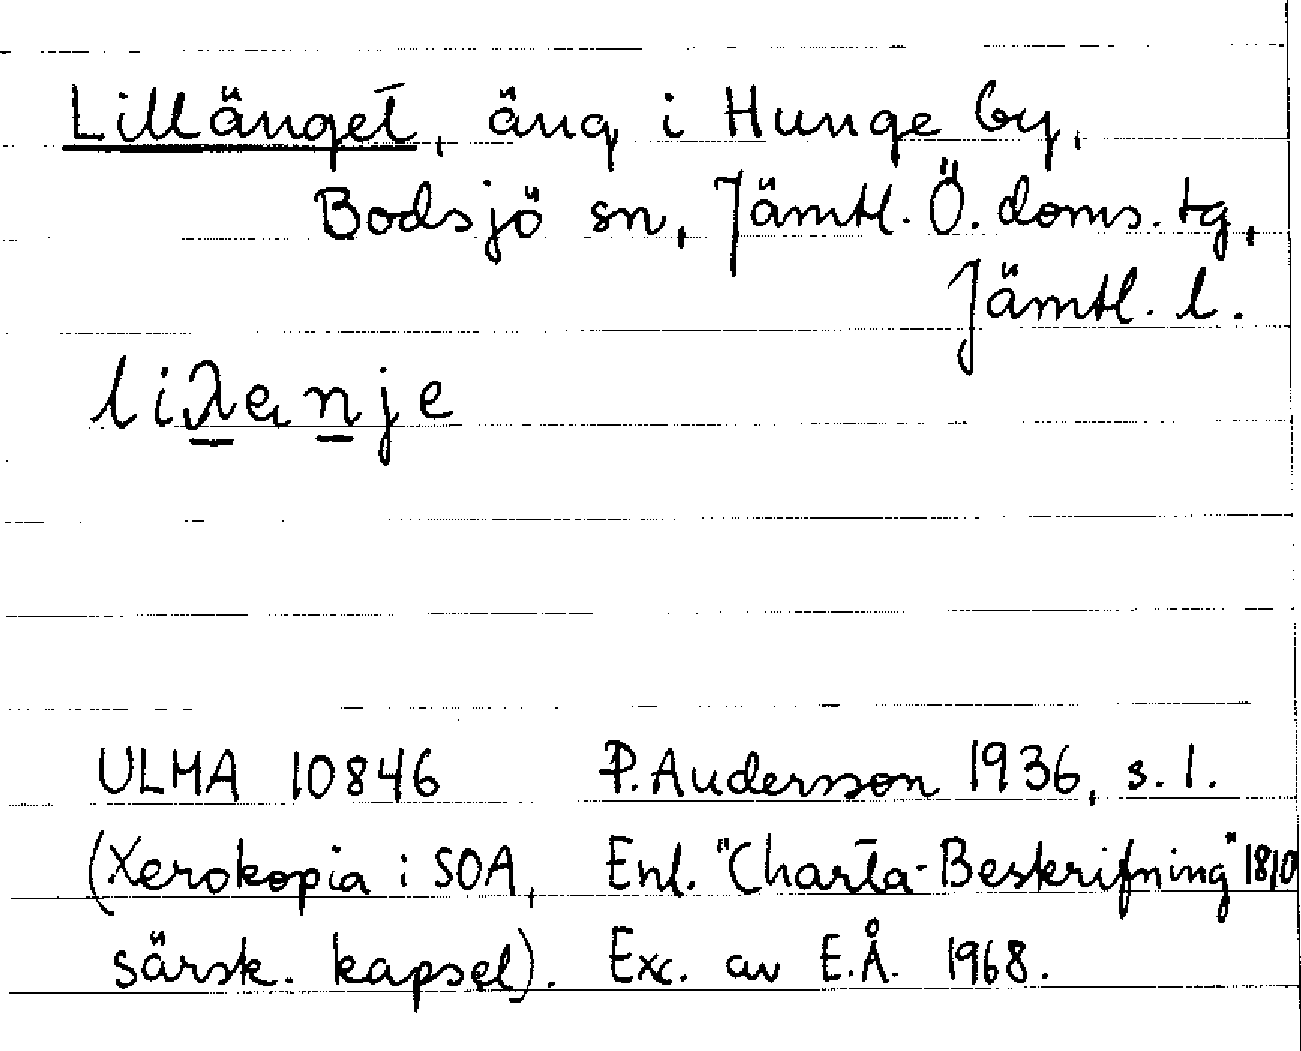 Lillänget, äng i Hunge by,
Bodsjö sn, Jämtl. Ö. doms. tg,
Jämtl. l.
liλanje
ULMA 10846 P. Andersson 1936, s. 1.
(Xerokopia i SOA, Enl. "Charta-Beskrifning" 1810
särsk. kapsel). Exc. av E.Å. 1968.